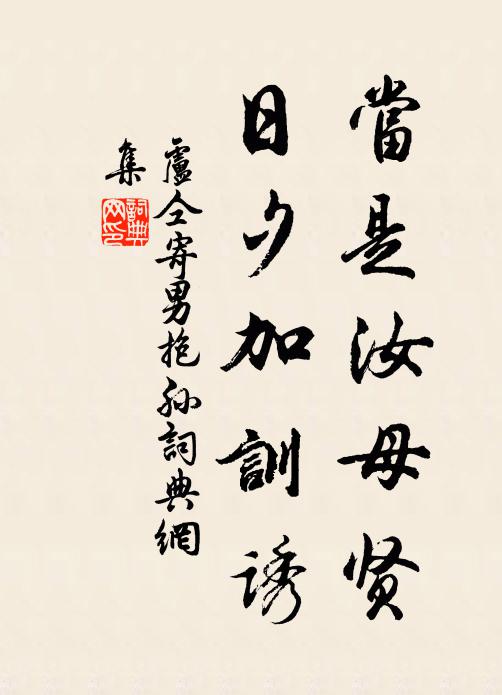 當是汝母贤
日夕加訓诱
盧仝寄男抱孙詞典網
集
詞典
网印